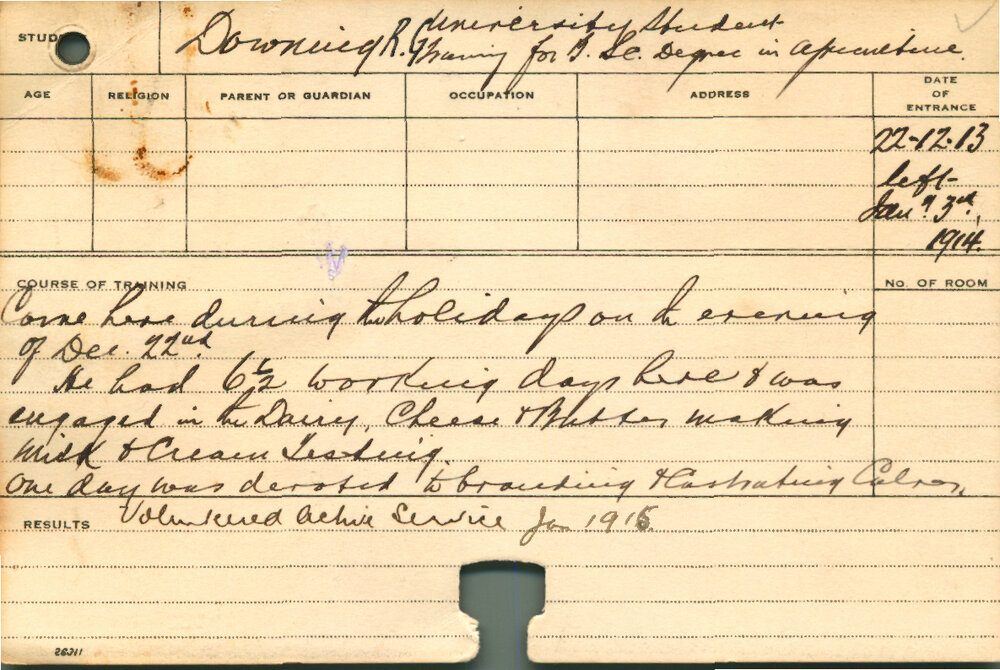 STUD
Downing R.G. University Student
training for B. Sc. Degree in Agriculture.
AGE RELIGION PARENT OR GUARDIAN OCCUPATION ADDRESS DATE OF ENTRANCE
22-12-13
left
Jany 3rd,
1914.
COURSE OF TRAINING No. OF ROOM
Came here during the holidays on the evening
of Dec. 22nd.
He had 6½ working days here & was
engaged in the Dairy, Cheese & Butter making
Milk & Cream Testing.
One day was devoted to branding & Castrating Calves.
RESULTS Volunteered Active Service Jan 1915
26311